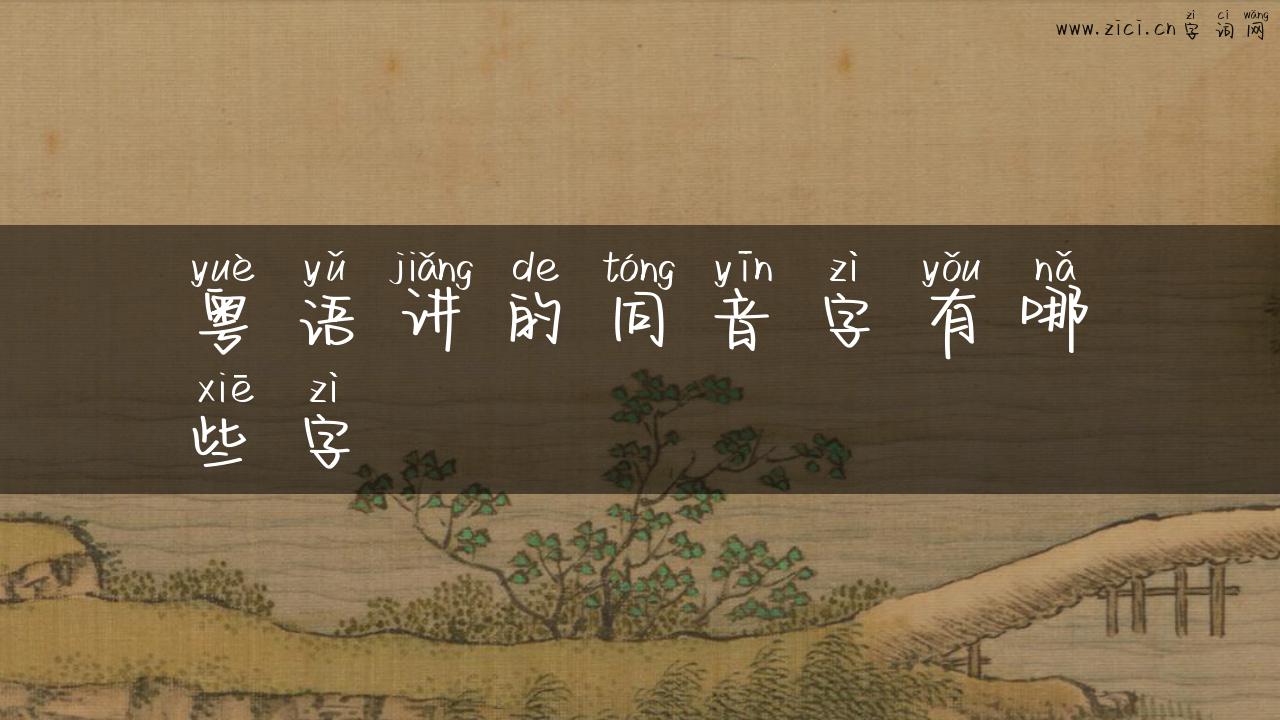 zì cí wǎng
www.zici.cn 字 词 网
yuè yǔ jiǎng de tóng yīn zì yǒu nǎ
粤 语 讲 的 同 音 字 有 哪
xiē zì
些 字